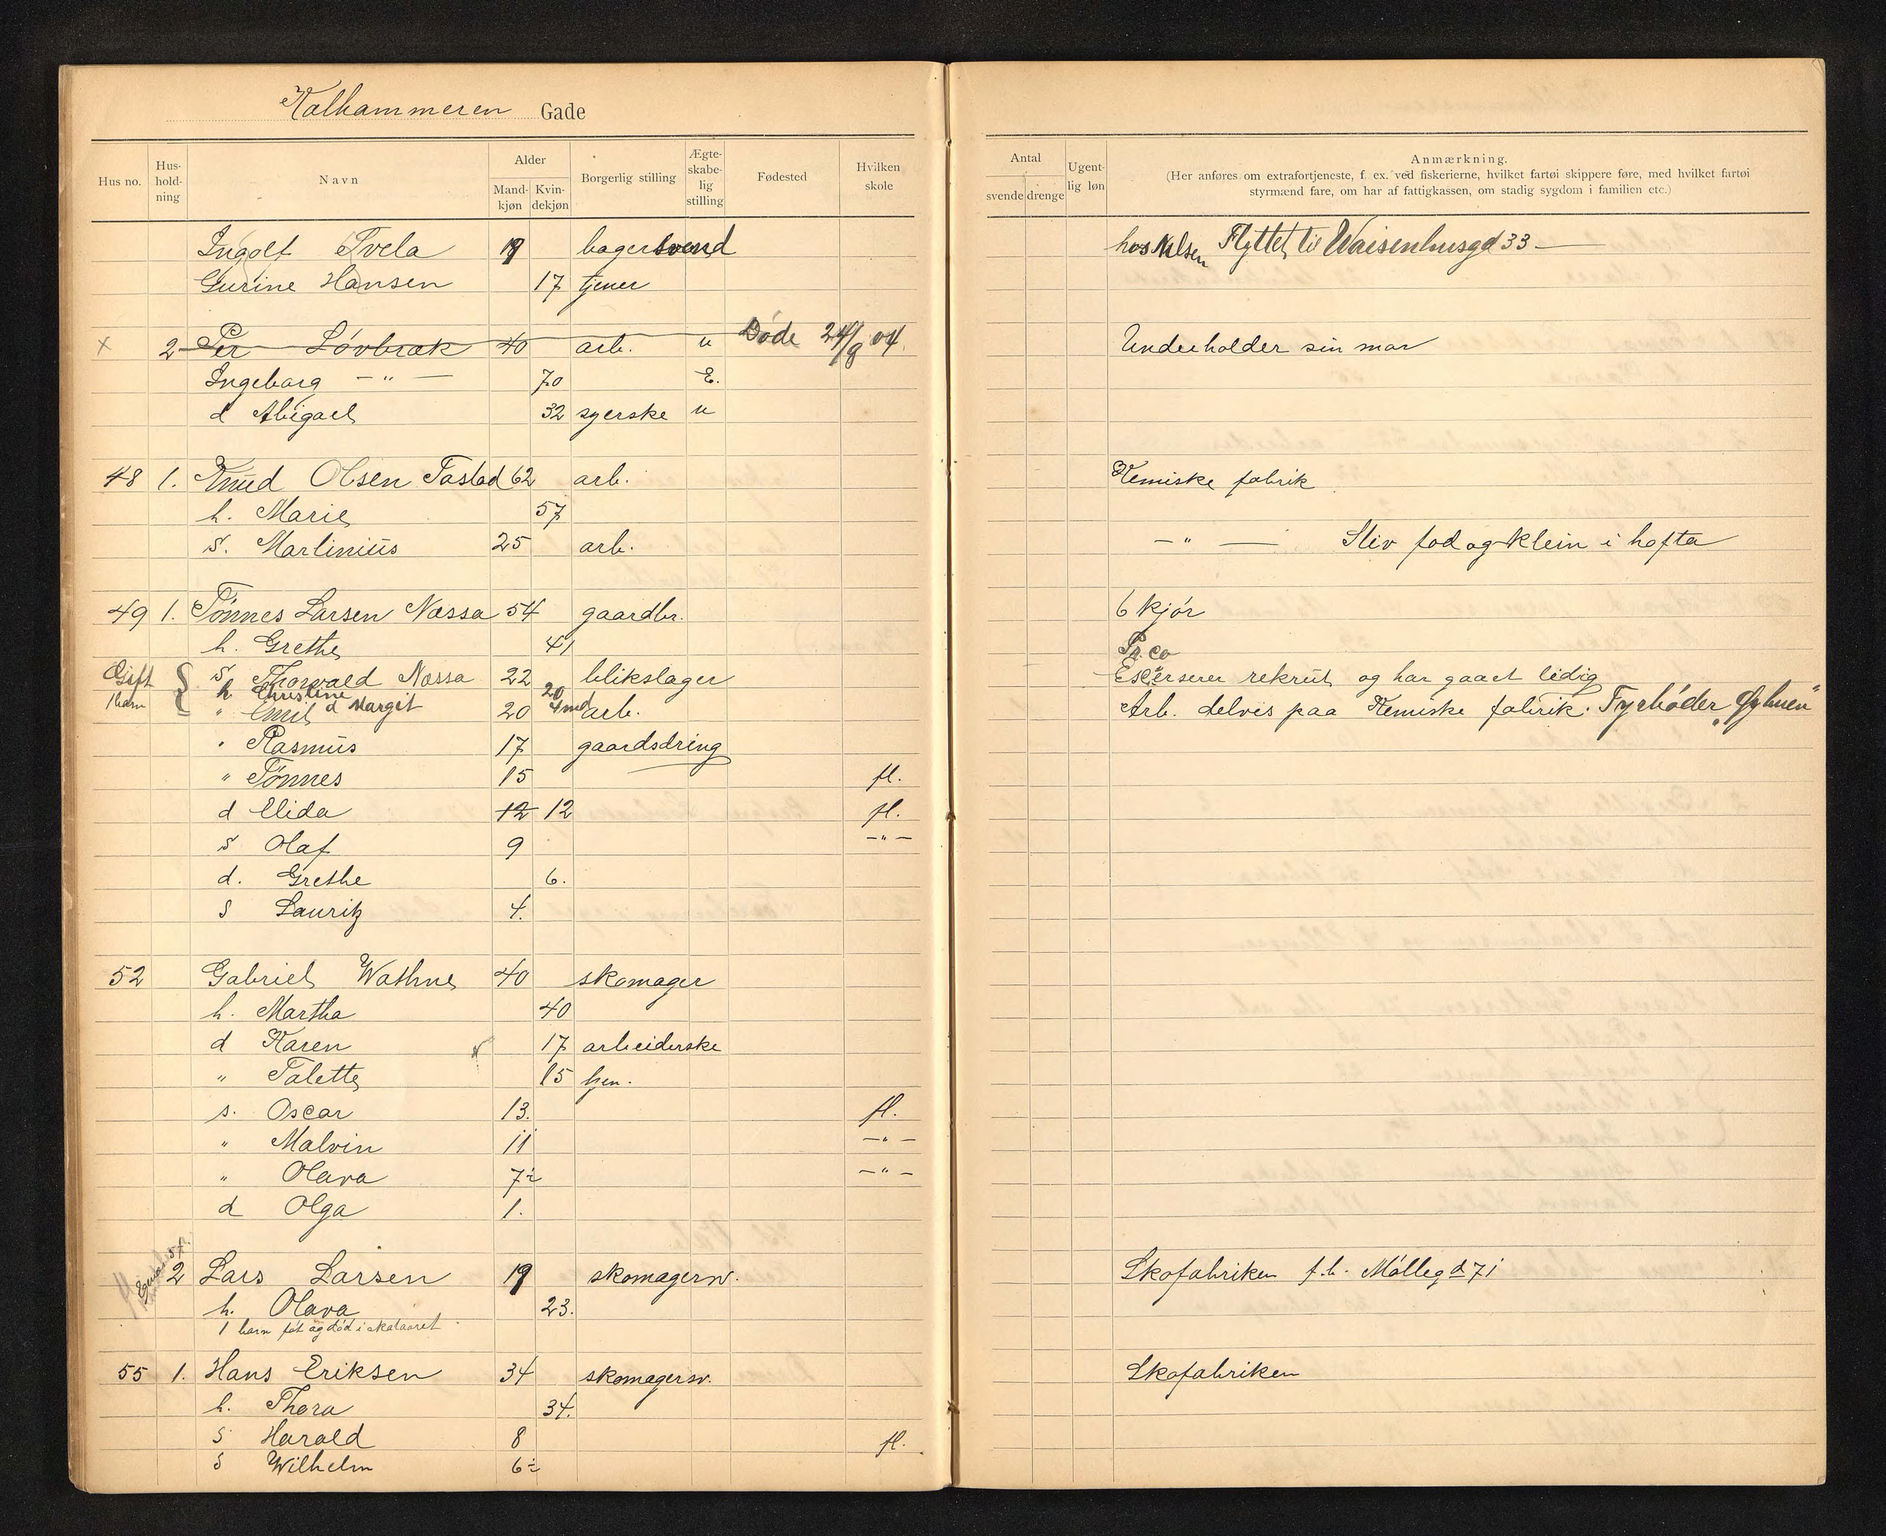 Kalhammeren Gade
Hus no. Hus-hold-ning Navn Alder Mand-kjøn Kvin-dekjøn Borgerlig stilling Ægte-skabe-lig stilling Fødested Hvilken skole
Antal svende drenge Ugent-lig løn Anmærkning.
(Her anføres om extrafortjeneste, f. ex. ved fiskerierne, hvilket fartøi skippere føre, med hvilket fartøi
styrmænd fare, om har af fattigkassen, om stadig sygdom i familien etc.)
Ingolf Tvela 19 bagersvend hos Nilsen Flyttet til Waisenhusgd 33
Gurine Hansen 17 tjener
x 2 Per Løvbræk 40 arb. u Døde 24/8 04. Underholder sin mor
Ingeborg —„— 70 E.
d Abigael 32 syerske u
48 1. Knud Olsen Tastad 62 arb. Kemiske fabrik
h. Marie 57
s. Martinius 25 arb. —„— Stiv fod og klein i hofta
49 1. Tønnes Larsen Næssa 54 gaardbr. 6 kjør
h. Grethe 41
Gift s Thorvald Næssa 22 blikslager Pr. co Exserserer rekrut og har gaaet lidig
1 barn h Christine 20 d Margit 4 md
„ Emil 20 arb. Arb. delvis paa Kemiske fabrik. Fyrbøder
„ Rasmus 17 gaardsdreng
„ Tønnes 15 fl.
d Elida 12 12 fl.
s Olaf 9 —„—
d. Grethe 6.
s Lauritz 4.
52 Gabriel Wathne 40 skomager
h. Martha 40
d Karen 17 arbeiderske
„ Talette 15 hjem.
s. Oscar 13. fl.
„ Malvin 11 —„—
„ Olava 7½ —„—
d Olga 1.
2 Lars Larsen 19 skomagersv. Skofabriken f.b. Møllegd 71
h. Olava 23.
1 barn føt og død i skotaaret
55 1. Hans Eriksen 34 skomagersv. Skofabriken
h. Thora 34.
s Harald 8 fl.
s Wilhelm 6½